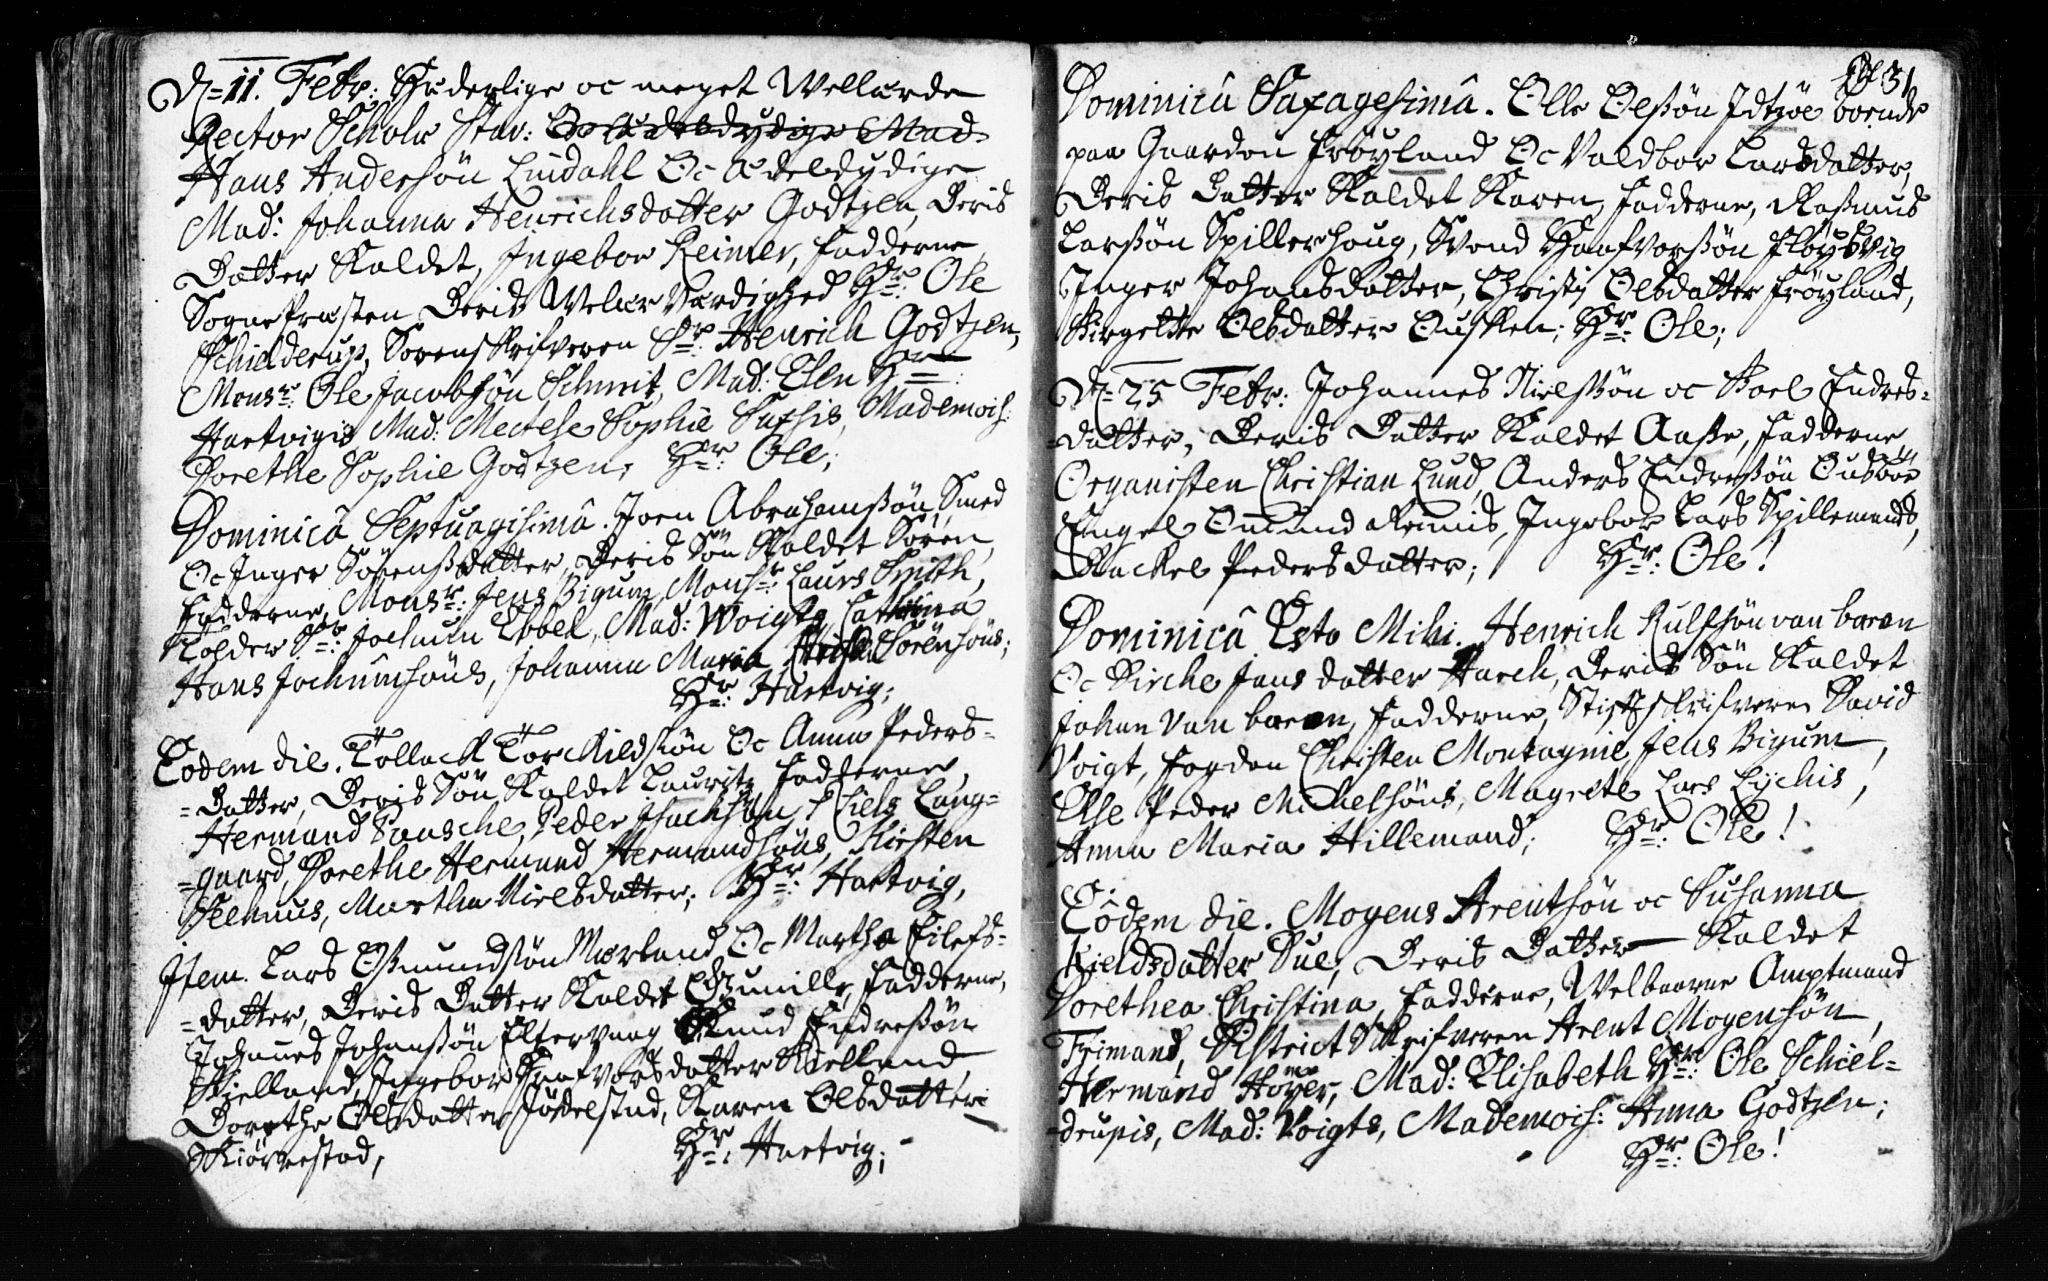 D= 11. Febr: Hæderlige oc meget Wellærde
Rector Scholæ Stav: Oc Ædeldydige Mad
Hans Andersön Lindahl Oc Ædeldydige
Mad: Johanna Henrichsdatter Godtzen, Deris
Datter Kaldet, Ingebor Reimer, Fadderne
SognePræsten Deris Velær Værdighed Hr: Ole
Schielderup, Sorenskrifveren Sr: Henrich Godtzen,
Monsr: Ole Jacobsön Schmit, Mad: Elen Hr:
Hartvigis Mad: Mectele Sophie Mademois:
Dorethe Sophie Godtzen, Hr: Ole;
Dominicâ Septuagisimâ. Joen Abrahamssön Smed
Oc Inger Sörenssdatter, Deris Sön Kaldet Sören,
Fadderne, Monsr: Jens Bigum, Monsr: Laurs Smith,
Sr: Jochum Ebbel, Mad: Woigts, Cathrina
Hans Jochumsöns, Johanna Maria Sörensöns;
Hr: Hartvig;
Eodem die. Töllack Torchildssön Oc Anna Peders=
=Datter, Deris Sön Kaldet Lauritz, Fadderne,
Hermand Pausche, Peder Isachsön, Niels Lang=
=gaard, Dorethe Hermand Hermandsöns, Kirsten
Martha Nielsdatter; Hr: Hartvig,
Item. Lars Ossmundssön Mærland Oc Martha Eilefs=
=datter, Deris Datter Kaldet Gunille, Fadderne,
Johannes Johanssön Eltervaag, Knud Endressön
Kielland, Ingebor Haafvorsdatter Kielland,
Dorethe Olsdatter Jösselstad, Karen Olsdatter
Skiörrestad, Hr: Hartvig;
31
Dominicâ Saxagesimâ. Olle Olssön Idtzöe boende
paa Gaarden Fröyland Oc Valdbor Larsdatter,
Deris Datter Kaldet Karen, Fadderne, Rassmus
Larssön Spillerhaug, Svend Haafvorssön Flöysvig
Inger Johansdatter, Christj Olsdatter Fröyland,
Birgette Olsdatter Hr: Ole;
D= 25 Febr: Johannes Nielssön oc Boel Endres=
=datter, Deris Datter Kaldet Aasse, Fadderne
Organisten Christian Lund, Anders Endressön
Engel Omund Remis, Ingebor Lars Spillemands,
Rackel Pedersdatter; Hr: Ole!
Dominicâ Esto Mihi. Henrich Rulfsön van baren
Oc Birche Jansdatter Harch, Deris Sön Kaldet
Johan van baren, Fadderne, Stiftskrifveren David
Voigt, Fogden Christen Montagnie, Jens Bigum,
Else Peder Michelsöns, Magrete Lars Lychis,
Anna Maria Hillemand; Hr: Ole!
Eôdem die. Mogens Arentsön oc Susanna
Kieldsdatter Bue, Deris Datter Kaldet
Dorethea Christina, Fadderne, Welbaarne Amptmand
Frimand, DistrictSkrifveren Arent Mogensön,
Hermand Höyer, Mad: Elisabeth Hr: Ole Schiel=
drupis, Mad: Voigts, Mademois: Anna Godtzen;
Hr: Ole!